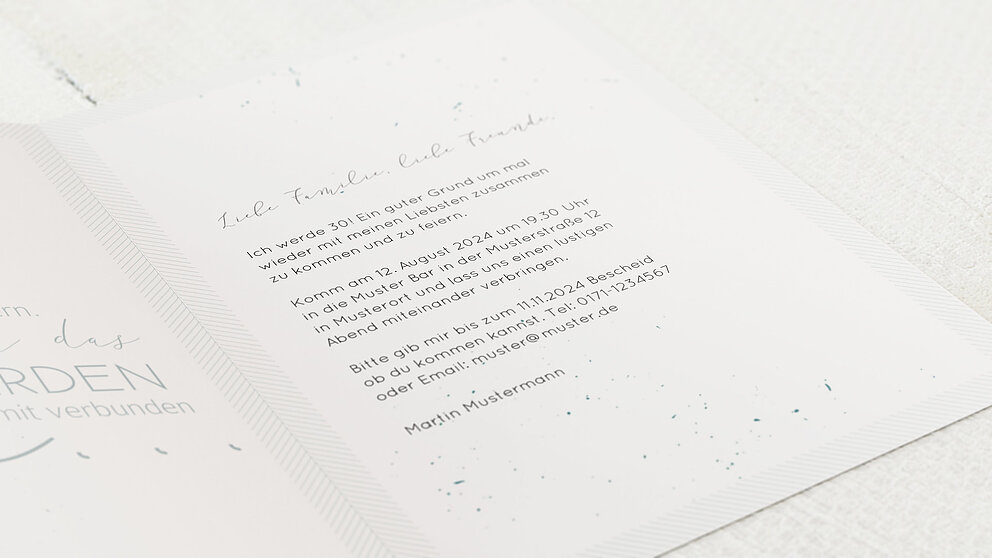 ern.
das
RDEN
mit verbunden
Liebe Familie, liebe Freunde,
Ich werde 30! Ein guter Grund um mal
wieder mit meinen Liebsten zusammen
zu kommen und zu feiern.
Komm am 12. August 2024 um 19.30 Uhr
in die Muster Bar in der Musterstraße 12
in Musterort und lass uns einen lustigen
Abend miteinander verbringen.
Bitte gib mir bis zum 11.11.2024 Bescheid
ob du kommen kannst. Tel: 0171-1234567
oder Email: muster@muster.de
Martin Mustermann